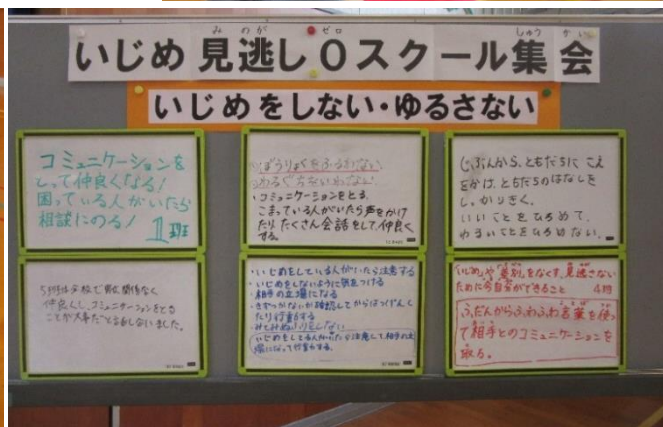 いじめ見逃し0スクール集会
いじめをしない・ゆるさない
コミュニケーションを
とって仲良くなる!
困っている人がいたら
相談にのる!
1班
・ぼうりょくをふるわない
・わるぐちをいわない
・コミュニケーションをとる。
こまっている人がいたら声をかけ
たりたくさん会話をして、仲良く
する。
じぶんから、ともだちに こえ
をかけ、ともだちのはなしを
しっかりきく。
いいことをひろめて、
わるいことをひろめない。
5班は全校で男女関係なく
仲良くし、コミュニケーションをとる
ことが大事だと
しました。
・いじめをしている人がいたら注意する
・いじめをしないように気をつける
・相手の立場になる
・きずつかないか確認してからはつげんし
たり行動する
・みてみぬふりをしない
いじめをしてる人がいたら注意して、相手の立
場になって行動する。
「いじめ」や「差別」をなくす、見逃さない
ために今自分ができること 4班
ふだんからふわふわ言葉を使っ
て相手とのコミュニケーションを
取る。